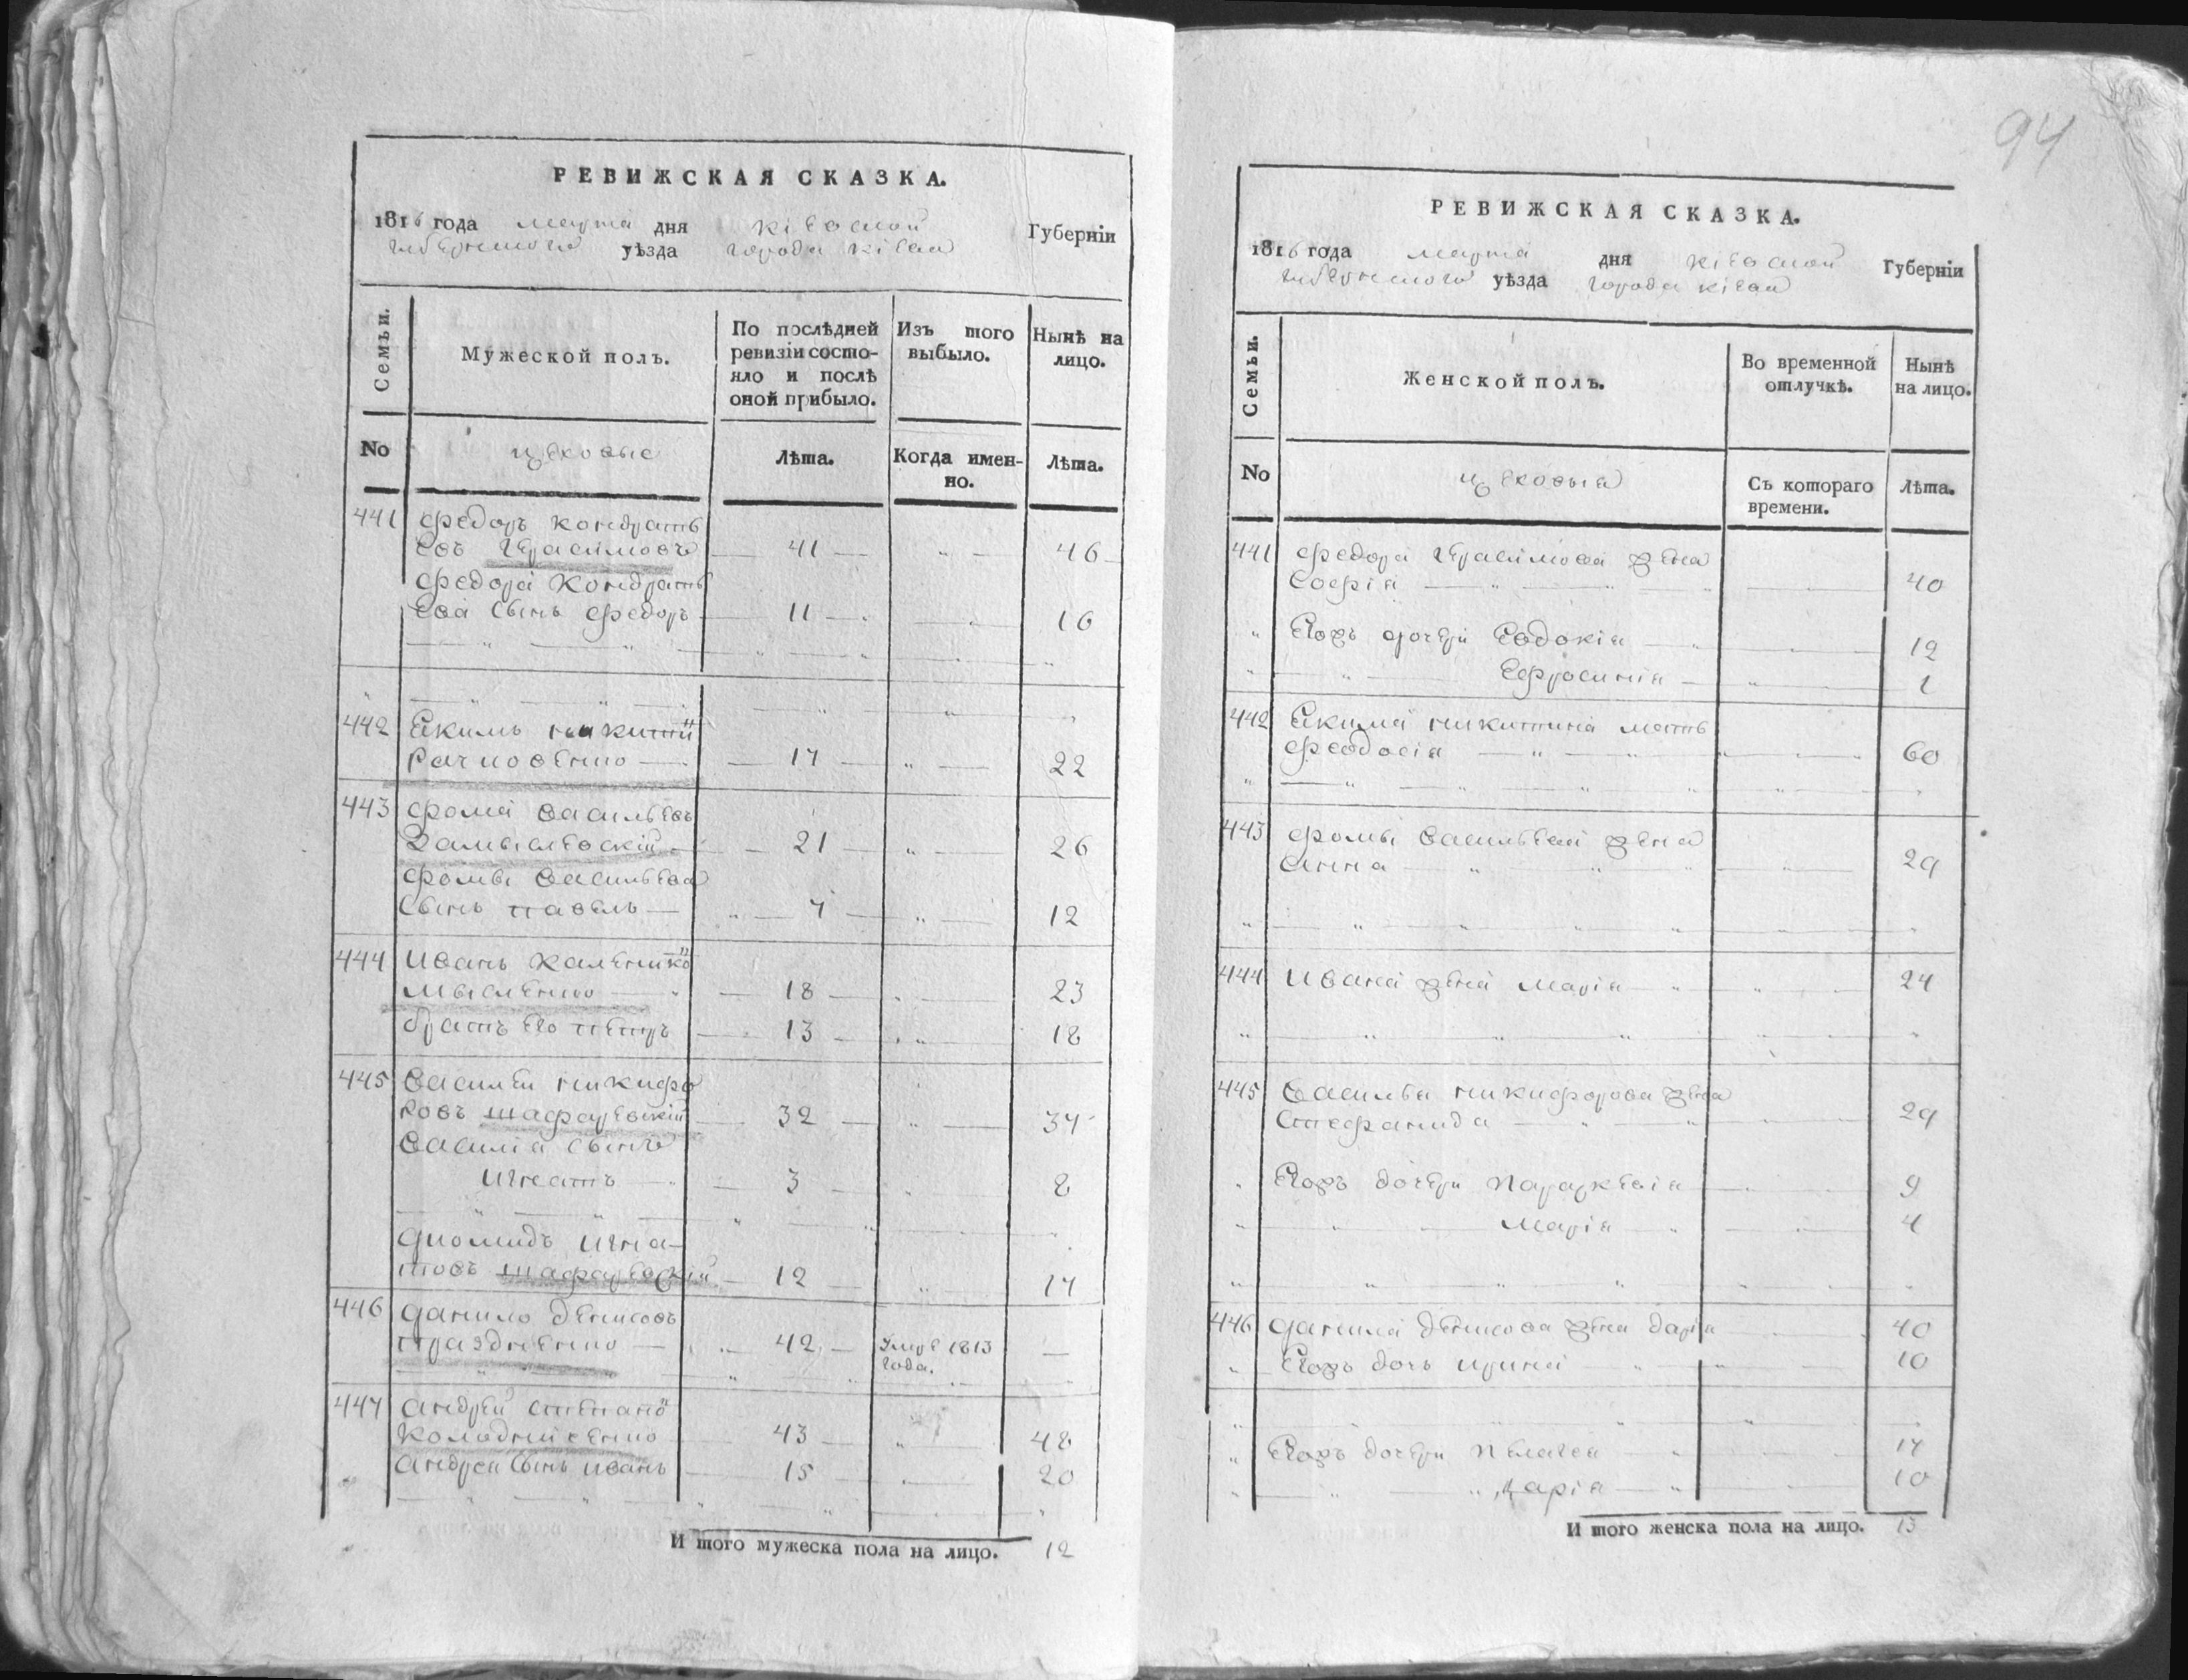 РЕВИЖСКАЯ СКАЗКА.
1816 года марта дня кіевской Губерніи
уѣзда города кіева
Семьи.
Мужеской полъ.
По послѣдней ревизіи состояло и послѣ оной прибыло.
Изъ того выбыло.
Нынѣ на лицо.
No
цеховые
Лѣта.
Когда именно.
Лѣта.
441 федоръ кондрать
евъ Герасимовъ 41 46
федора кондрать
ева сынъ федоръ 11 16
442 Екимъ никити
17 22
443 фома васильевъ
Замыслевскій 21 26
фомы васильева
сынъ павелъ 7 12
444 иванъ
18 23
братъ его петръ 13 18
445 василеи никифо
ровъ шафаревскій 32 37
василія сынъ
игнатъ 3 8
диомидъ игна-
товъ шафаревскій 12 17
446 данило денисовъ
42 умре 1813
года.
447 андреи степано
43 48
андрея сынъ иванъ 15 20
И того мужеска пола на лицо. 12
94
РЕВИЖСКАЯ СКАЗКА.
1816 года марта дня кіевской Губерніи
уѣзда города кіева
Семьи.
Женской полъ.
Во временной отлучкѣ.
Нынѣ на лицо.
No
цеховыя
Съ котораго времени.
Лѣта.
441 федора Герасимова жена
софія 40
Егожъ дочери Евдокія 12
Ефросинія 1
442 Екима никитина мать
феодосія 60
443 фомы васильева жена
анна 29
444 ивана жена марія 24
445 василья никифорова жена
стефанида 29
Егожъ дочери параскевія 9
марія 4
446 данила денисова жена дарія 40
Егожъ дочь ирина 10
Егожъ дочери пелагея 17
дарія 10
И того женска пола на лицо. 13